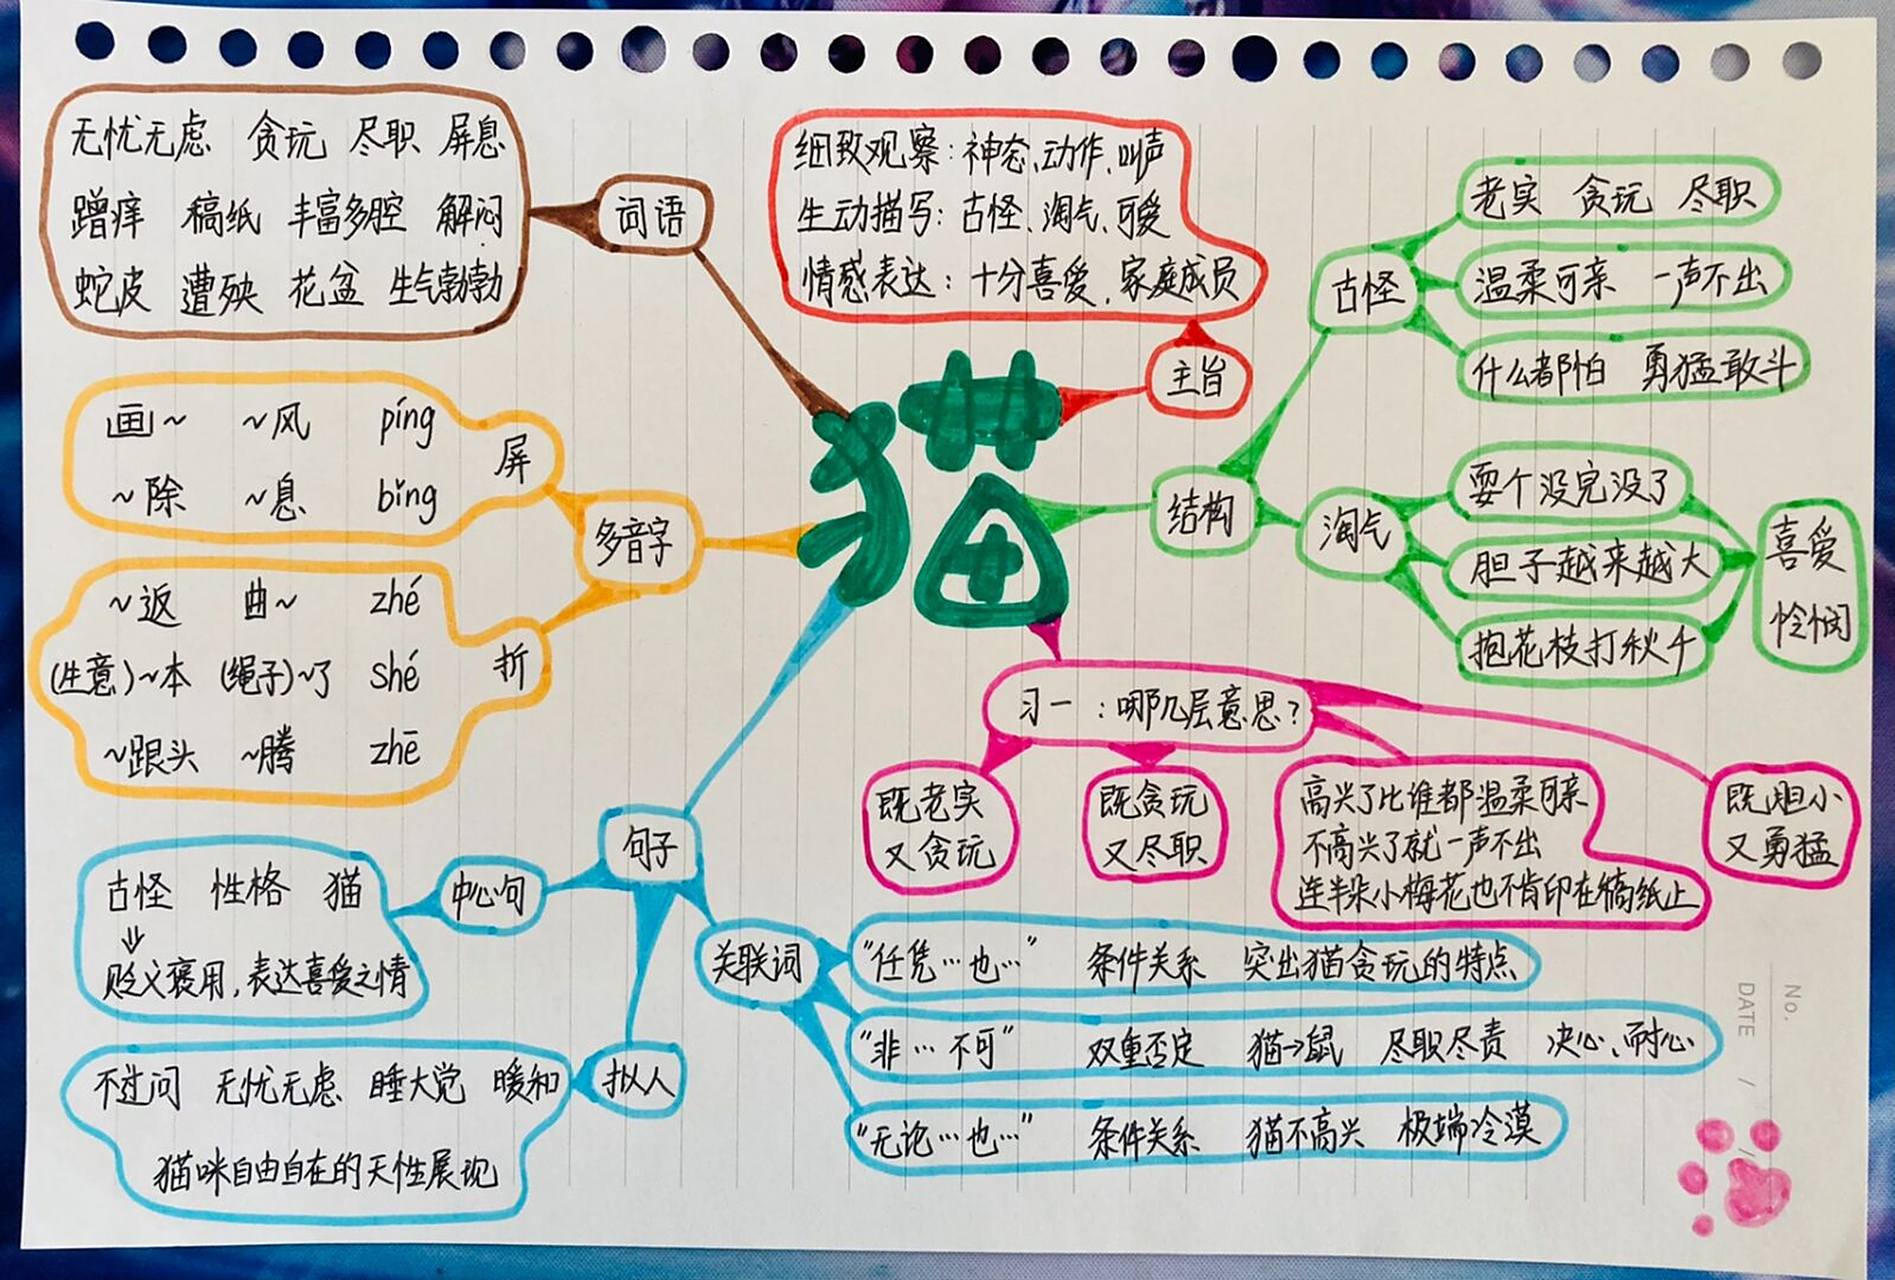 无忧无虑 贪玩 尽职 屏息
蹭痒 稿纸 丰富多腔 解闷
蛇皮 遭殃 花盆 生气勃勃
词语
细致观察：神态、动作、叫声
生动描写：古怪、淘气、可爱
情感表达：十分喜爱、家庭成员
主旨
猫
老实 贪玩 尽职
古怪
温柔可亲 一声不出
什么都怕 勇猛敢斗
结构
淘气
耍个没完没了
胆子越来越大
抱花枝打秋千
喜爱
怜悯
画~ ~风 píng
~除 ~息 bǐng
屏
多音字
~返 曲~ zhé
(生意)~本 (绳子)~了 shé
~跟头 ~腾 zhē
折
习一：哪几层意思？
既老实
又贪玩
既贪玩
又尽职
高兴了比谁都温柔可亲
不高兴了就一声不出
连半朵小梅花也不肯印在稿纸上
既胆小
又勇猛
句子
中心句
古怪 性格 猫
⇓
贬义褒用，表达喜爱之情
拟人
不过问 无忧无虑 睡大觉 暖和
猫咪自由自在的天性展现
关联词
“任凭…也…” 条件关系 突出猫贪玩的特点
“非…不可” 双重否定 猫→鼠 尽职尽责 决心、耐心
“无论…也…” 条件关系 猫不高兴 极端冷漠
No.
DATE / /